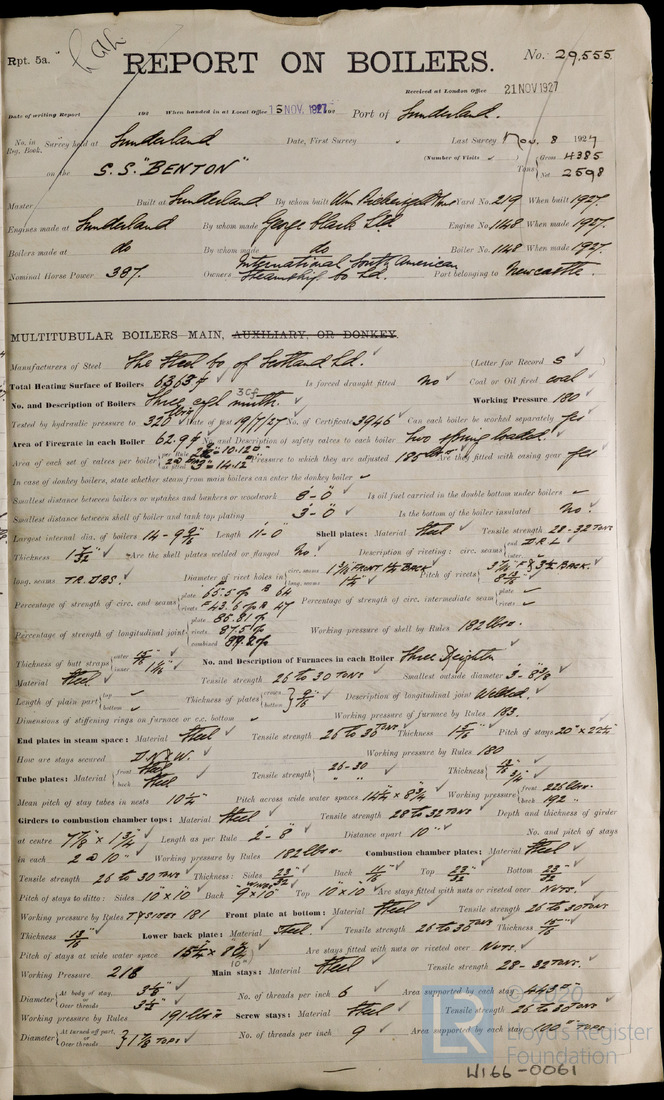 Rpt. 5a.
REPORT ON BOILERS.
No. 29,555
Received at London Office 21 NOV 1927
Date of writing Report 192 When handed in at Local Office 15 NOV. 1927 Port of Sunderland.
No. in Reg. Book. Survey held at Sunderland Date, First Survey Last Survey Nov. 8 1927
(Number of Visits )
on the S.S. "BENTON" Tons Gross 4385 Net 2598
Master Built at Sunderland By whom built Wm Pickersgill & Sons Yard No. 219 When built 1927.
Engines made at Sunderland By whom made George Clark Ltd. Engine No. 1148 When made 1927.
Boilers made at do By whom made do Boiler No. 1148 When made 1927
Nominal Horse Power 397. Owners International South American Steamship Co Ld. Port belonging to Newcastle.
MULTITUBULAR BOILERS MAIN, AUXILIARY, OR DONKEY.
Manufacturers of Steel The Steel Co of Scotland Ld. (Letter for Record S )
Total Heating Surface of Boilers 6363 Is forced draught fitted No Coal or Oil fired coal
No. and Description of Boilers Three cyl. mult. Working Pressure 180
Tested by hydraulic pressure to 320 Date of test 19/7/27 No. of Certificate 3946 Can each boiler be worked separately yes
Area of Firegrate in each Boiler 62.9 No. and Description of safety valves to each boiler two spring loaded.
Area of each set of valves per boiler per Rule as fitted 14.12 Pressure to which they are adjusted 185 Are they fitted with easing gear yes
In case of donkey boilers, state whether steam from main boilers can enter the donkey boiler
Smallest distance between boilers or uptakes and bunkers or woodwork Is oil fuel carried in the double bottom under boilers
Smallest distance between shell of boiler and tank top plating 3'-0" Is the bottom of the boiler insulated no.
Largest internal dia. of boilers 14-9 9/16" Length 11-0" Shell plates: Material Steel Tensile strength 28-32 TONS
Thickness 1 7/32 Are the shell plates welded or flanged No. Description of riveting: circ. seams end D.R.L inter.
long. seams TR. DBS. Diameter of rivet holes in circ. seams FRONT BACK long. seams 1 1/4" Pitch of rivets BACK.
Percentage of strength of circ. end seams plate 65.5 B 64 rivets 43.6 47 Percentage of strength of circ. intermediate seam plate rivets
Percentage of strength of longitudinal joint plate 85.81 rivets 87.5 combined Working pressure of shell by Rules 182 lbs.
Thickness of butt straps outer inner No. and Description of Furnaces in each Boiler Three Deighton
Material Steel Tensile strength 26 to 30 TONS Smallest outside diameter 3'-8 3/8
Length of plain part top bottom Thickness of plates crown bottom 9/16 Description of longitudinal joint Welded.
Dimensions of stiffening rings on furnace or c.c. bottom Working pressure of furnace by Rules 193.
End plates in steam space: Material Steel Tensile strength 26 to 30 TONS Thickness Pitch of stays 20" x 22 1/4"
How are stays secured D.N.&W. Working pressure by Rules 180
Tube plates: Material front Steel back Steel Tensile strength 26-30 Thickness 3/4
Mean pitch of stay tubes in nests 10 1/4" Pitch across wide water spaces 14 1/4 x 8 3/4" Working pressure front 226 lbs. back 192
Girders to combustion chamber tops: Material Steel Tensile strength 28 to 32 TONS Depth and thickness of girder
at centre 7 7/8" x 1 3/4" Length as per Rule 2'-8" Distance apart 10" No. and pitch of stays
in each 2 @ 10" Working pressure by Rules 182 lbs. Combustion chamber plates: Material Steel
Tensile strength 26 to 30 TONS Thickness: Sides 23/32 Back Top 23/32 Bottom 23/32
Pitch of stays to ditto: Sides 10" x 10" Back 9" x 10" Top 10" x 10" Are stays fitted with nuts or riveted over NUTS.
Working pressure by Rules T & SIDES 181 Front plate at bottom: Material Steel Tensile strength 26 to 30 TONS
Thickness Lower back plate: Material Steel Tensile strength 26 to 30 TONS Thickness
Pitch of stays at wide water space Are stays fitted with nuts or riveted over NUTS.
Working Pressure 218 Main stays: Material Steel Tensile strength 28-32 TONS.
Diameter At body of stay, or Over threads 3 1/2" No. of threads per inch 6 Area supported by each stay 443
Working pressure by Rules 191 lbs Screw stays: Material Steel Tensile strength 26 to 30 TONS
Diameter At turned off part, or Over threads 1 7/8 TOPS No. of threads per inch 9 Area supported by each stay 100 TOPS
© 2020
Lloyd's Register
Foundation
W166-0061